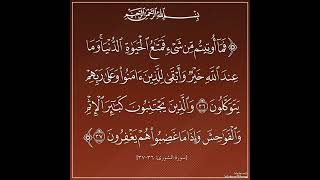 بسم الله الرحمن الرحيم
﴿ فَمَا أُوتِيتُم مِّن شَيْءٍ فَمَتَاعُ الْحَيَاةِ الدُّنْيَا ۖ وَمَا
عِندَ اللَّهِ خَيْرٌ وَأَبْقَىٰ لِلَّذِينَ آمَنُوا وَعَلَىٰ رَبِّهِمْ
يَتَوَكَّلُونَ ٣٦ وَالَّذِينَ يَجْتَنِبُونَ كَبَائِرَ الْإِثْمِ
وَالْفَوَاحِشَ وَإِذَا مَا غَضِبُوا هُمْ يَغْفِرُونَ ٣٧ ﴾
[سورة الشورى: ٣٦-٣٧]